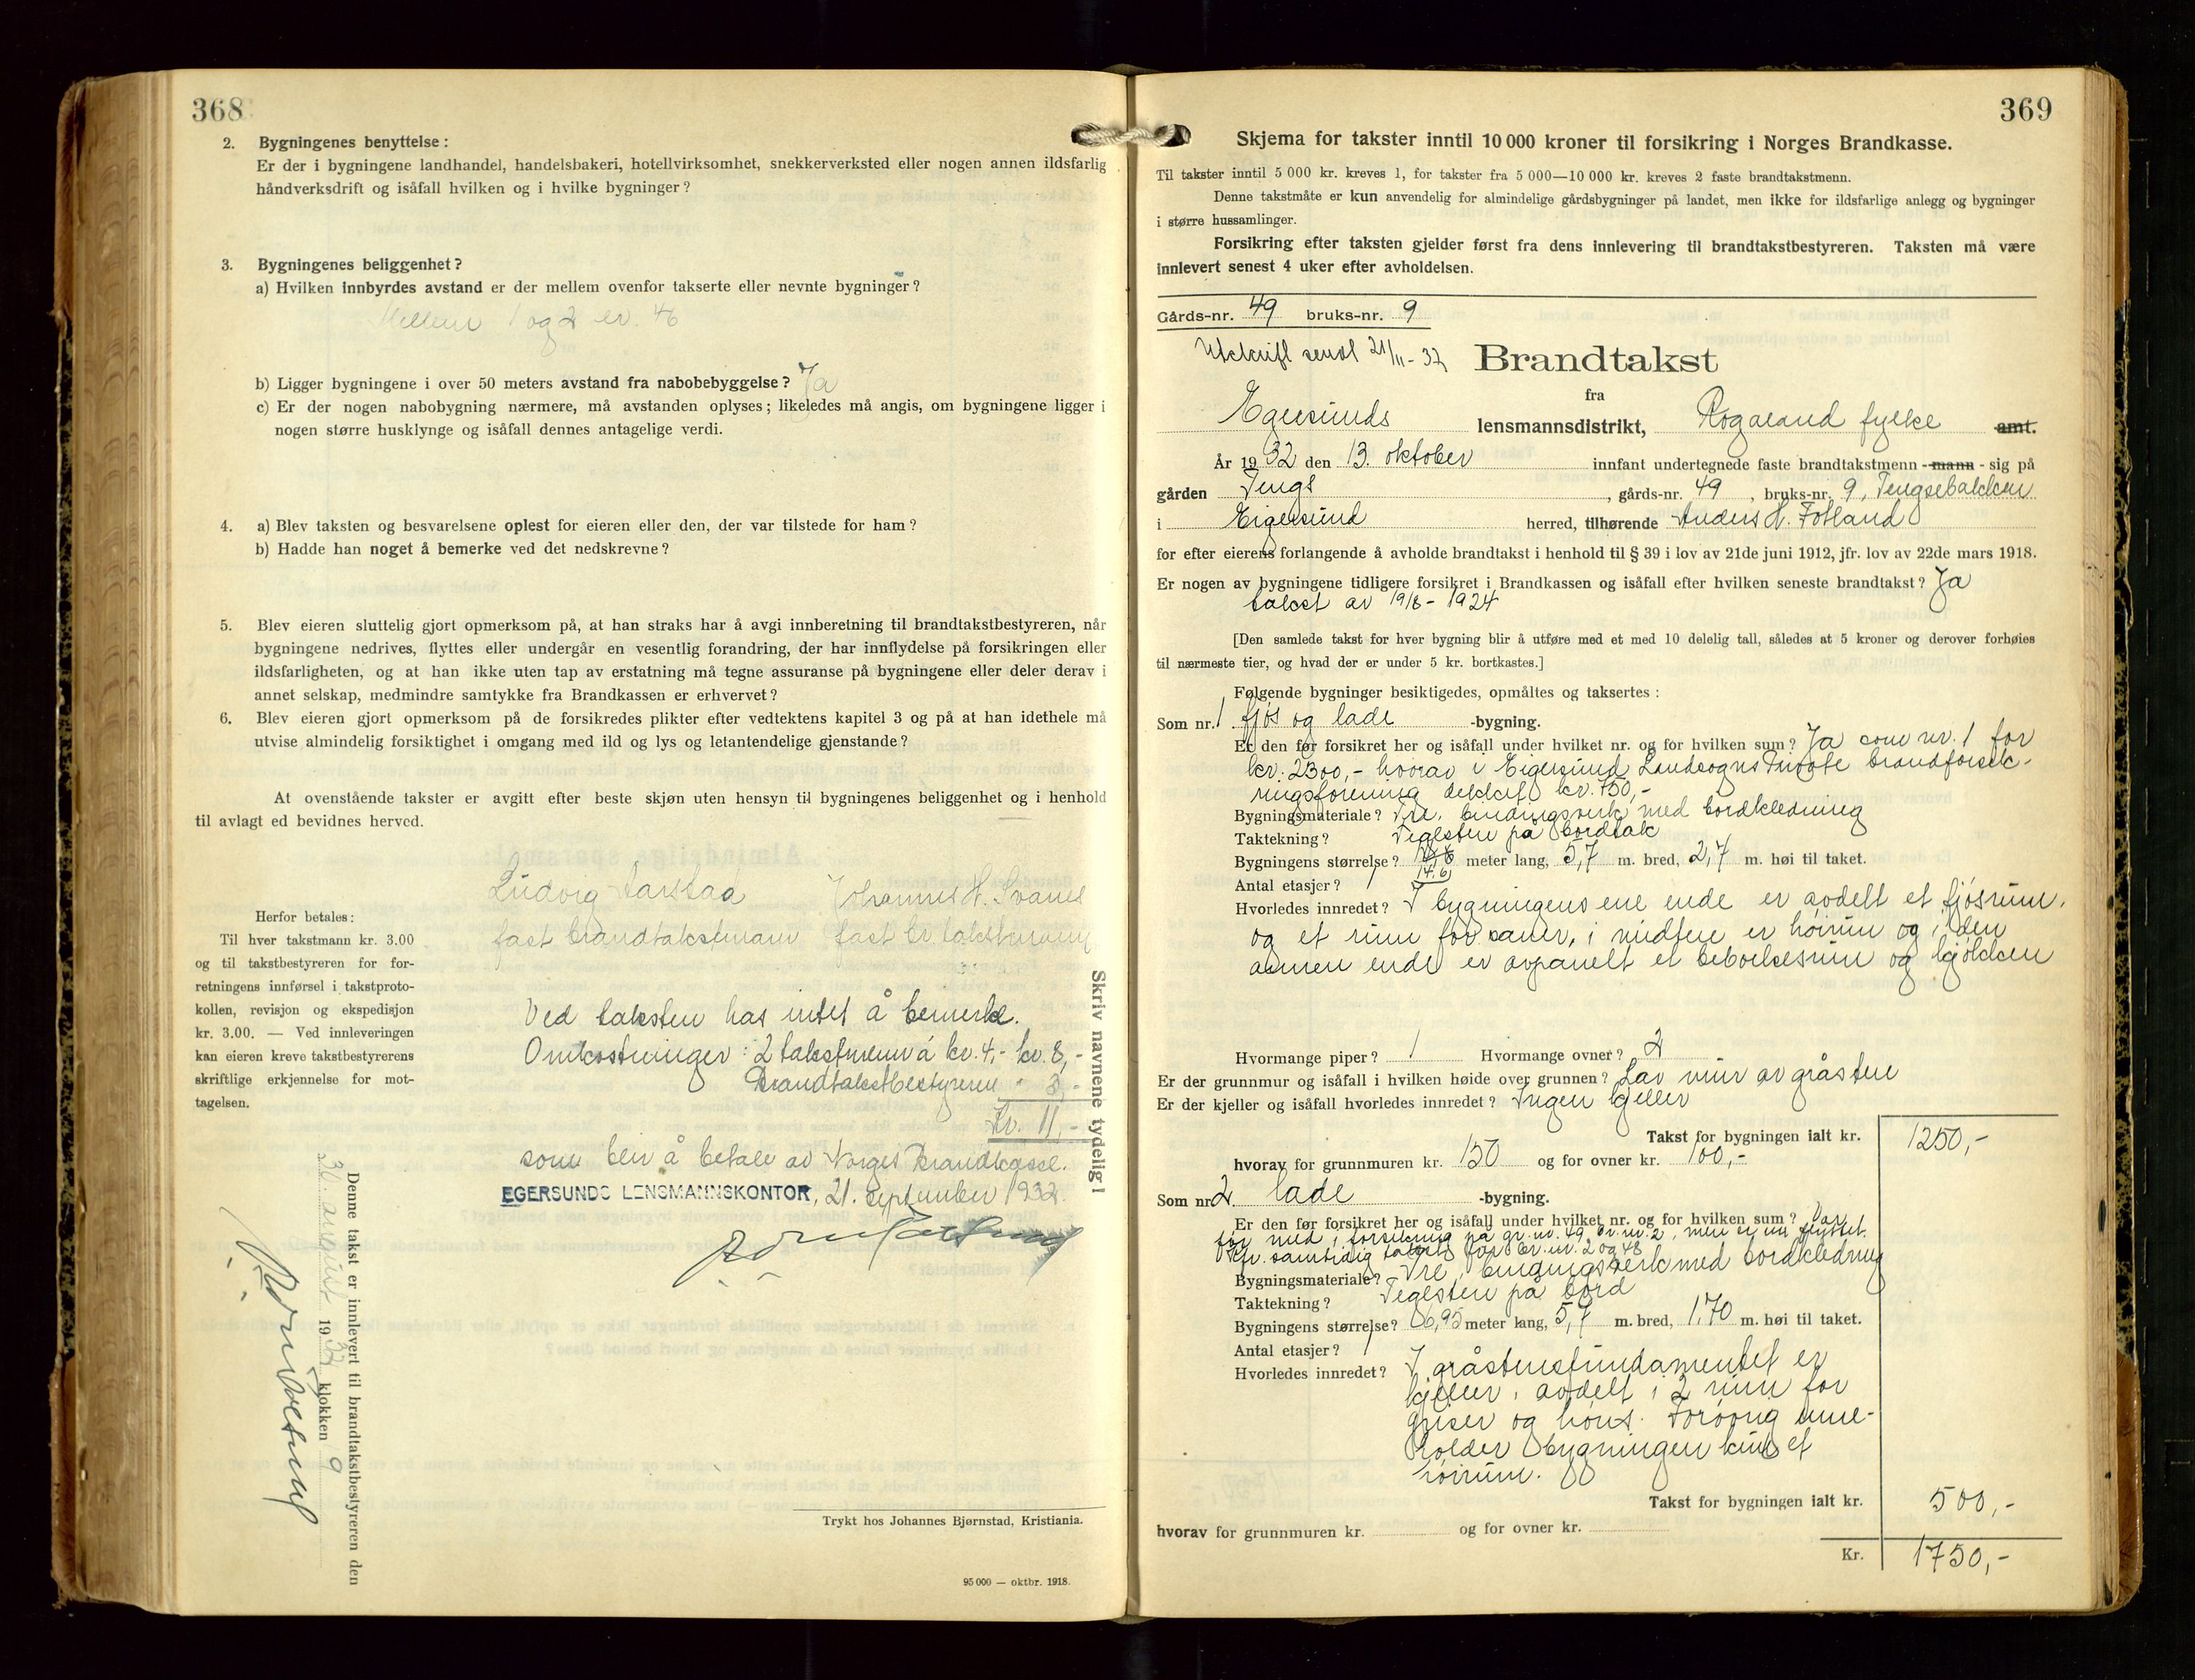 368
2. Bygningenes benyttelse:
Er der i bygningene landhandel, handelsbakeri, hotellvirksomhet, snekkerverksted eller nogen annen ildsfarlig
håndverksdrift og isåfall hvilken og i hvilke bygninger?
3. Bygningenes beliggenhet?
a) Hvilken innbyrdes avstand er der mellem ovenfor takserte eller nevnte bygninger?
Mellem 1 og 2 er. 46
b) Ligger bygningene i over 50 meters avstand fra nabobebyggelse? Ja
c) Er der nogen nabobygning nærmere, må avstanden oplyses; likeledes må angis, om bygningene ligger i
nogen større husklynge og isåfall dennes antagelige verdi.
4. a) Blev taksten og besvarelsene oplest for eieren eller den, der var tilstede for ham?
b) Hadde han noget å bemerke ved det nedskrevne?
5. Blev eieren sluttelig gjort opmerksom på, at han straks har å avgi innberetning til brandtakstbestyreren, når
bygningene nedrives, flyttes eller undergår en vesentlig forandring, der har innflydelse på forsikringen eller
ildsfarligheten, og at han ikke uten tap av erstatning må tegne assuranse på bygningene eller deler derav i
annet selskap, medmindre samtykke fra Brandkassen er erhvervet?
6. Blev eieren gjort opmerksom på de forsikredes plikter efter vedtektens kapitel 3 og på at han idethele må
utvise almindelig forsiktighet i omgang med ild og lys og letantendelige gjenstande?
At ovenstående takster er avgitt efter beste skjøn uten hensyn til bygningenes beliggenhet og i henhold
til avlagt ed bevidnes herved.
Ludvig Aarstad Johannes H. Svanes
fast brandtakstmann fast br.takstmann
Herfor betales:
Til hver takstmann kr. 3.00
og til takstbestyreren for for-
retningens innførsel i takstproto-
kollen, revisjon og ekspedisjon
kr. 3.00. — Ved innleveringen
kan eieren kreve takstbestyrerens
skriftlige erkjennelse for mot-
tagelsen.
Skriv navnene tydelig!
Ved taksten has intet å bemerke.
Omkostninger: 2 takstmenn á kr. 4,- kr. 8,-
Brandtakstbestyreren " 3,-
Kr. 11,-
som blir å betale av Norges Brandkasse.
EGERSUNDS LENSMANNSKONTOR, 21. september 1932.
Denne takst er innlevert til brandtakstbestyreren den
30. august 1932 klokken 9
Trykt hos Johannes Bjørnstad, Kristiania.
95 000 — oktbr. 1918.
369
Skjema for takster inntil 10 000 kroner til forsikring i Norges Brandkasse.
Til takster inntil 5 000 kr. kreves 1, for takster fra 5 000—10 000 kr. kreves 2 faste brandtakstmenn.
Denne takstmåte er kun anvendelig for almindelige gårdsbygninger på landet, men ikke for ildsfarlige anlegg og bygninger
i større hussamlinger.
Forsikring efter taksten gjelder først fra dens innlevering til brandtakstbestyreren. Taksten må være
innlevert senest 4 uker efter avholdelsen.
Gårds-nr. 49 bruks-nr. 9
Utskrift sendt 21/11-32
Brandtakst
fra
Egersunds lensmannsdistrikt, Rogaland fylke amt.
År 1932 den 13. oktober innfant undertegnede faste brandtakstmenn - mann - sig på
gården Tengs, gårds-nr. 49, bruks-nr. 9, Tengsebakken
i Eigersund herred, tilhørende Anders H. Fotland
for efter eierens forlangende å avholde brandtakst i henhold til § 39 i lov av 21de juni 1912, jfr. lov av 22de mars 1918.
Er nogen av bygningene tidligere forsikret i Brandkassen og isåfall efter hvilken seneste brandtakst? Ja
takst av 19/8 - 1924
[Den samlede takst for hver bygning blir å utføre med et med 10 delelig tall, således at 5 kroner og derover forhøies
til nærmeste tier, og hvad der er under 5 kr. bortkastes.]
Følgende bygninger besiktigedes, opmåltes og taksertes:
Som nr. 1 fjøs og lade -bygning.
Er den før forsikret her og isåfall under hvilket nr. og for hvilken sum? Ja som nr. 1 for
kr. 2300,- hvorav i Eigersund Landsogns Private brandforsik-
ringsforening dekket kr. 750,-
Bygningsmateriale? Tre, bindingsverk med bordkledning
Taktekning? Teglsten på bordtak
Bygningens størrelse? 14,6 meter lang, 5,7 m. bred, 2,7 m. høi til taket.
Antal etasjer? 1
Hvorledes innredet? I bygningens ene ende er avdelt et fjøsrum,
og et rum for sauer, i midten er høirum og i den
annen ende er avpanelt et beboelsesrum og kjøkken
Hvormange piper? 1 Hvormange ovner? 2
Er der grunnmur og isåfall i hvilken høide over grunnen? Lav mur av gråsten
Er der kjeller og isåfall hvorledes innredet? Ingen kjeller
Takst for bygningen ialt kr. 1250,-
hvorav for grunnmuren kr. 150 og for ovner kr. 100,-
Som nr. 2. lade -bygning.
Er den før forsikret her og isåfall under hvilket nr. og for hvilken sum? Var
før med i forsikring på gr.nr. 49, br.nr. 2, men er nu flyttet.
Kfr. samtidig takst for br.nr. 2 og 48
Bygningsmateriale? Tre, bindingsverk med bordkledning
Taktekning? Teglsten på bord
Bygningens størrelse? 6,95 meter lang, 5,7 m. bred, 1,70 m. høi til taket.
Antal etasjer? 1
Hvorledes innredet? I gråstensfundamentet er
kjeller, avdelt i 2 rum for
griser og høns. Forøvrig inne-
holder bygningen kun et
høirum.
Takst for bygningen ialt kr. 500,-
hvorav for grunnmuren kr. og for ovner kr.
Kr. 1750,-